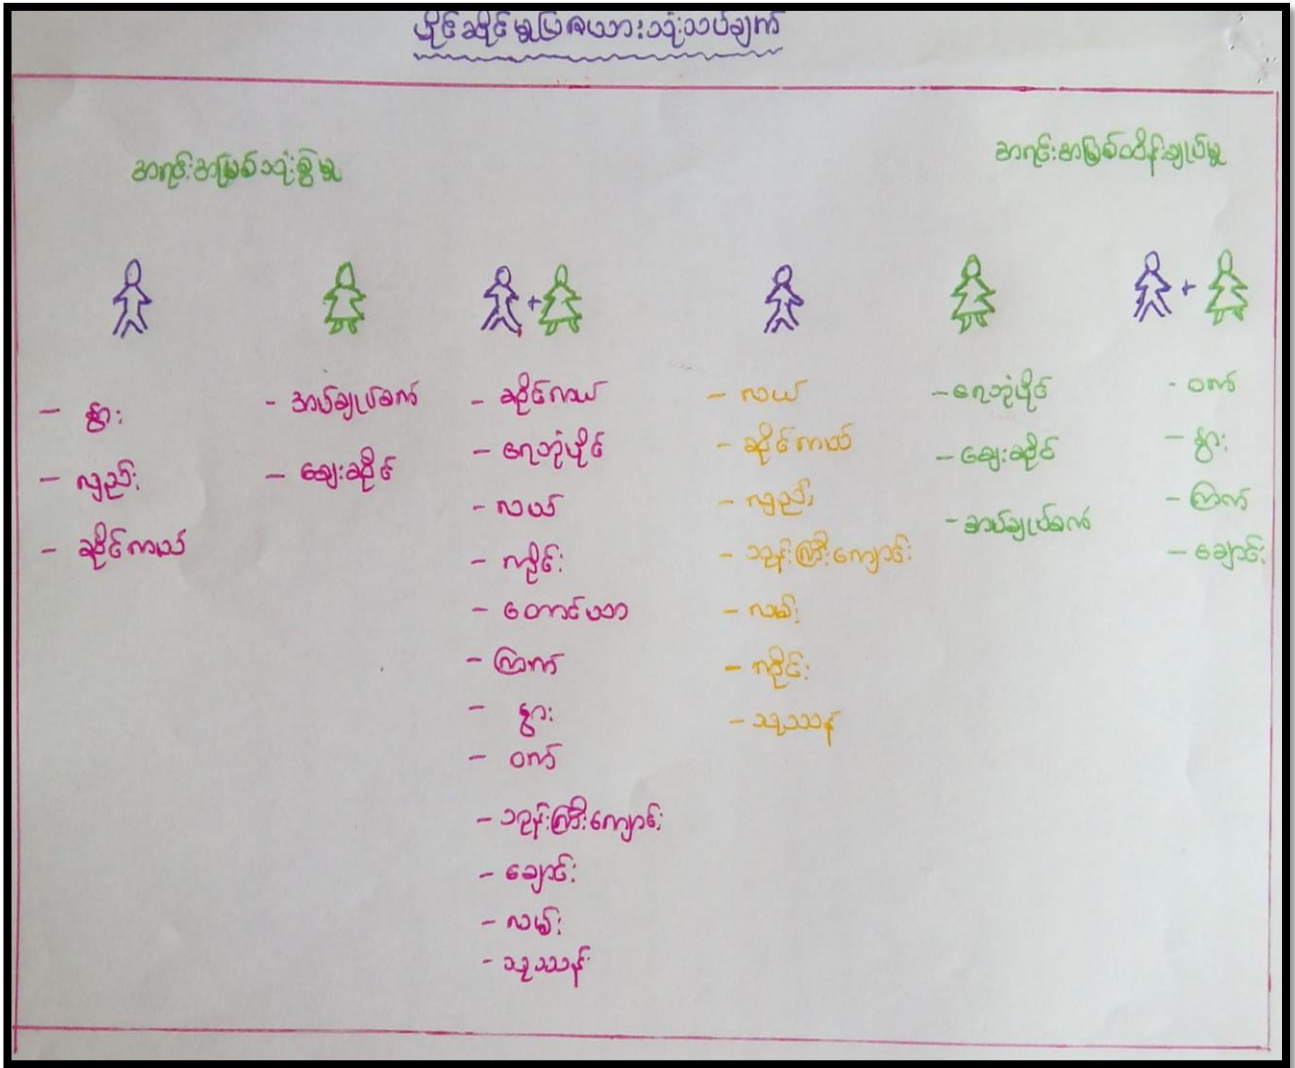 ပိုင်ဆိုင်မှုပြဇယားသုံးသပ်ချက်
အရင်းအမြစ်သုံးစွဲမှု
အရင်းအမြစ်ထိန်းချုပ်မှု
+
+
- နွား
- လှည်း
- ဆိုင်ကယ်
- အပ်ချုပ်စက်
- ဈေးဆိုင်
- ဆိုင်ကယ်
- ရေဘုံပိုင်
- လယ်
- ကိုင်း
- တောင်ယာ
- ကြက်
- နွား
- ဝက်
- ဘုန်းကြီးကျောင်း
- ချောင်း
- လမ်း
- သုဿန်
- လယ်
- ဆိုင်ကယ်
- လှည်း
- ဘုန်းကြီးကျောင်း
- လမ်း
- ကိုင်း
- သုဿန်
- ရေဘုံပိုင်
- ဈေးဆိုင်
- အပ်ချုပ်စက်
- ဝက်
- နွား
- ကြက်
- ချောင်း